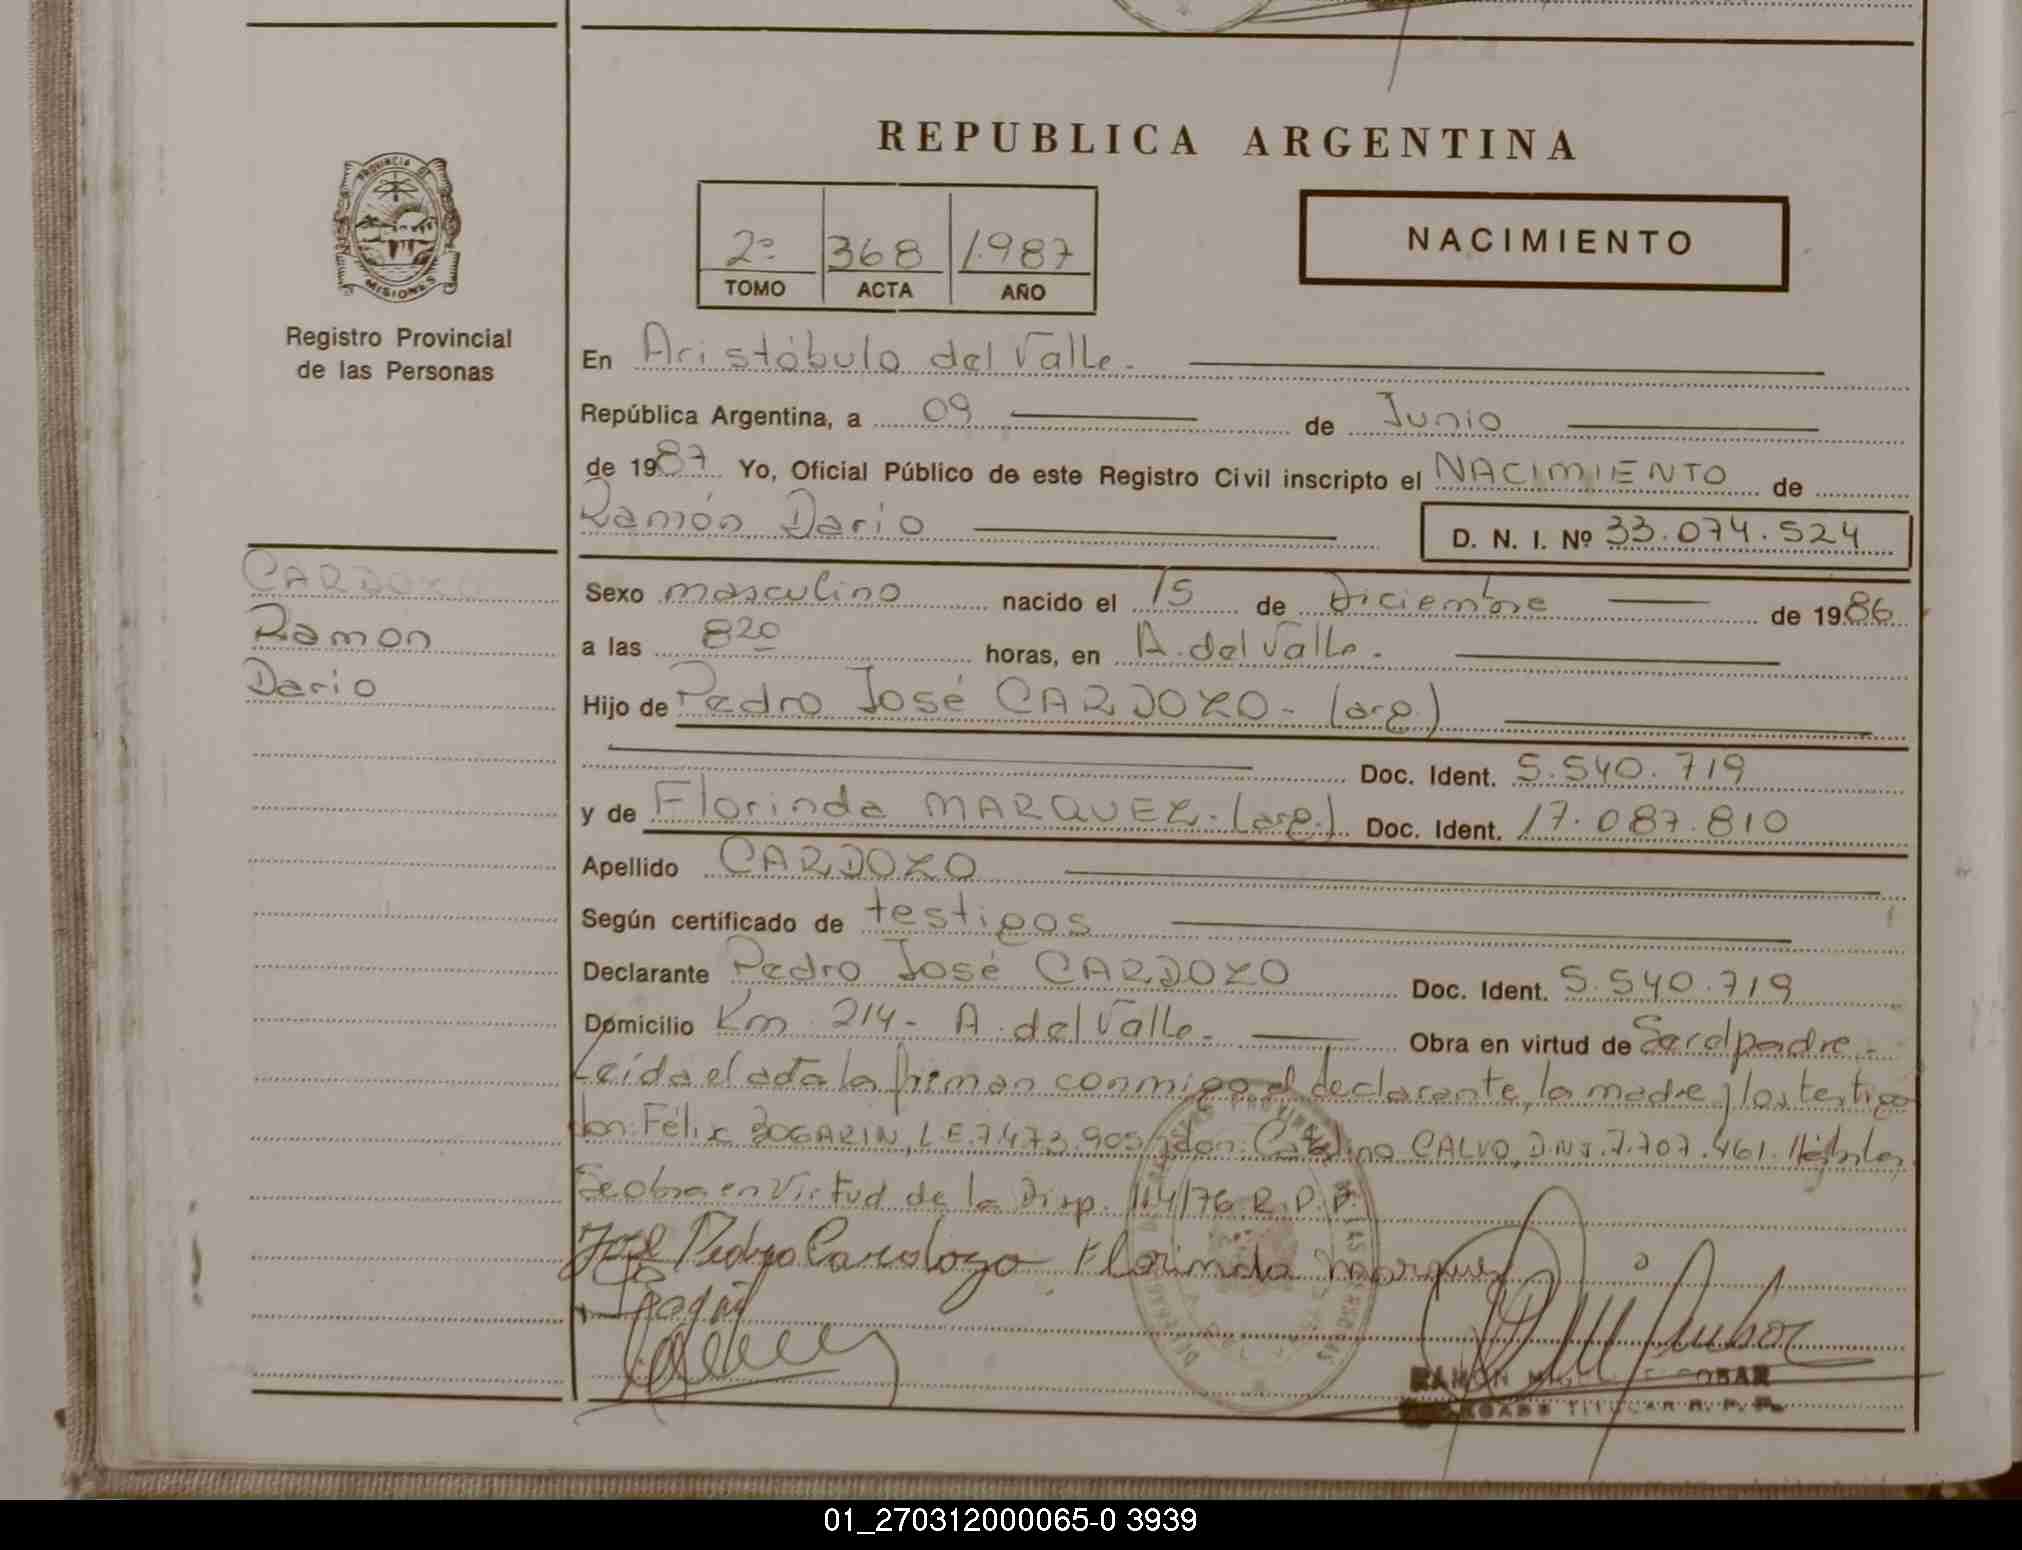 REPUBLICA ARGENTINA
PROVINCIA DE MISIONES
Registro Provincial
de las Personas
2º 368 1.987
TOMO ACTA AÑO
NACIMIENTO
En Aristóbulo del Valle.
República Argentina, a 09 de Junio
de 1987 Yo, Oficial Público de este Registro Civil inscripto el NACIMIENTO de
Ramón Dario D. N. I. Nº 33.074.524
CARDOZO
Ramon
Dario
Sexo masculino nacido el 15 de Diciembre de 1986
a las 820 horas, en A. del Valle.
Hijo de Pedro José CARDOZO - (arg.)
Doc. Ident. 5.540.719
y de Florinda MARQUEZ. (arg.) Doc. Ident. 17.087.810
Apellido CARDOZO
Según certificado de testigos
Declarante Pedro José CARDOZO Doc. Ident. 5.540.719
Domicilio Km 214 - A. del Valle. Obra en virtud de Ser el padre.
Leída el acta la firman conmigo el declarante, la madre y los testigo
don: Félix BOGARIN, L.E. 7.473.905 y don: Catalino CALVO, D.N.I. 7.707.461. Hábiles
Se obra en virtud de la Disp. 114/76 R.P.P.
José Pedro Cardozo Florinda Marquez
RAMON ESCOBAR
TITULAR R. P. P.
01_270312000065-0 3939